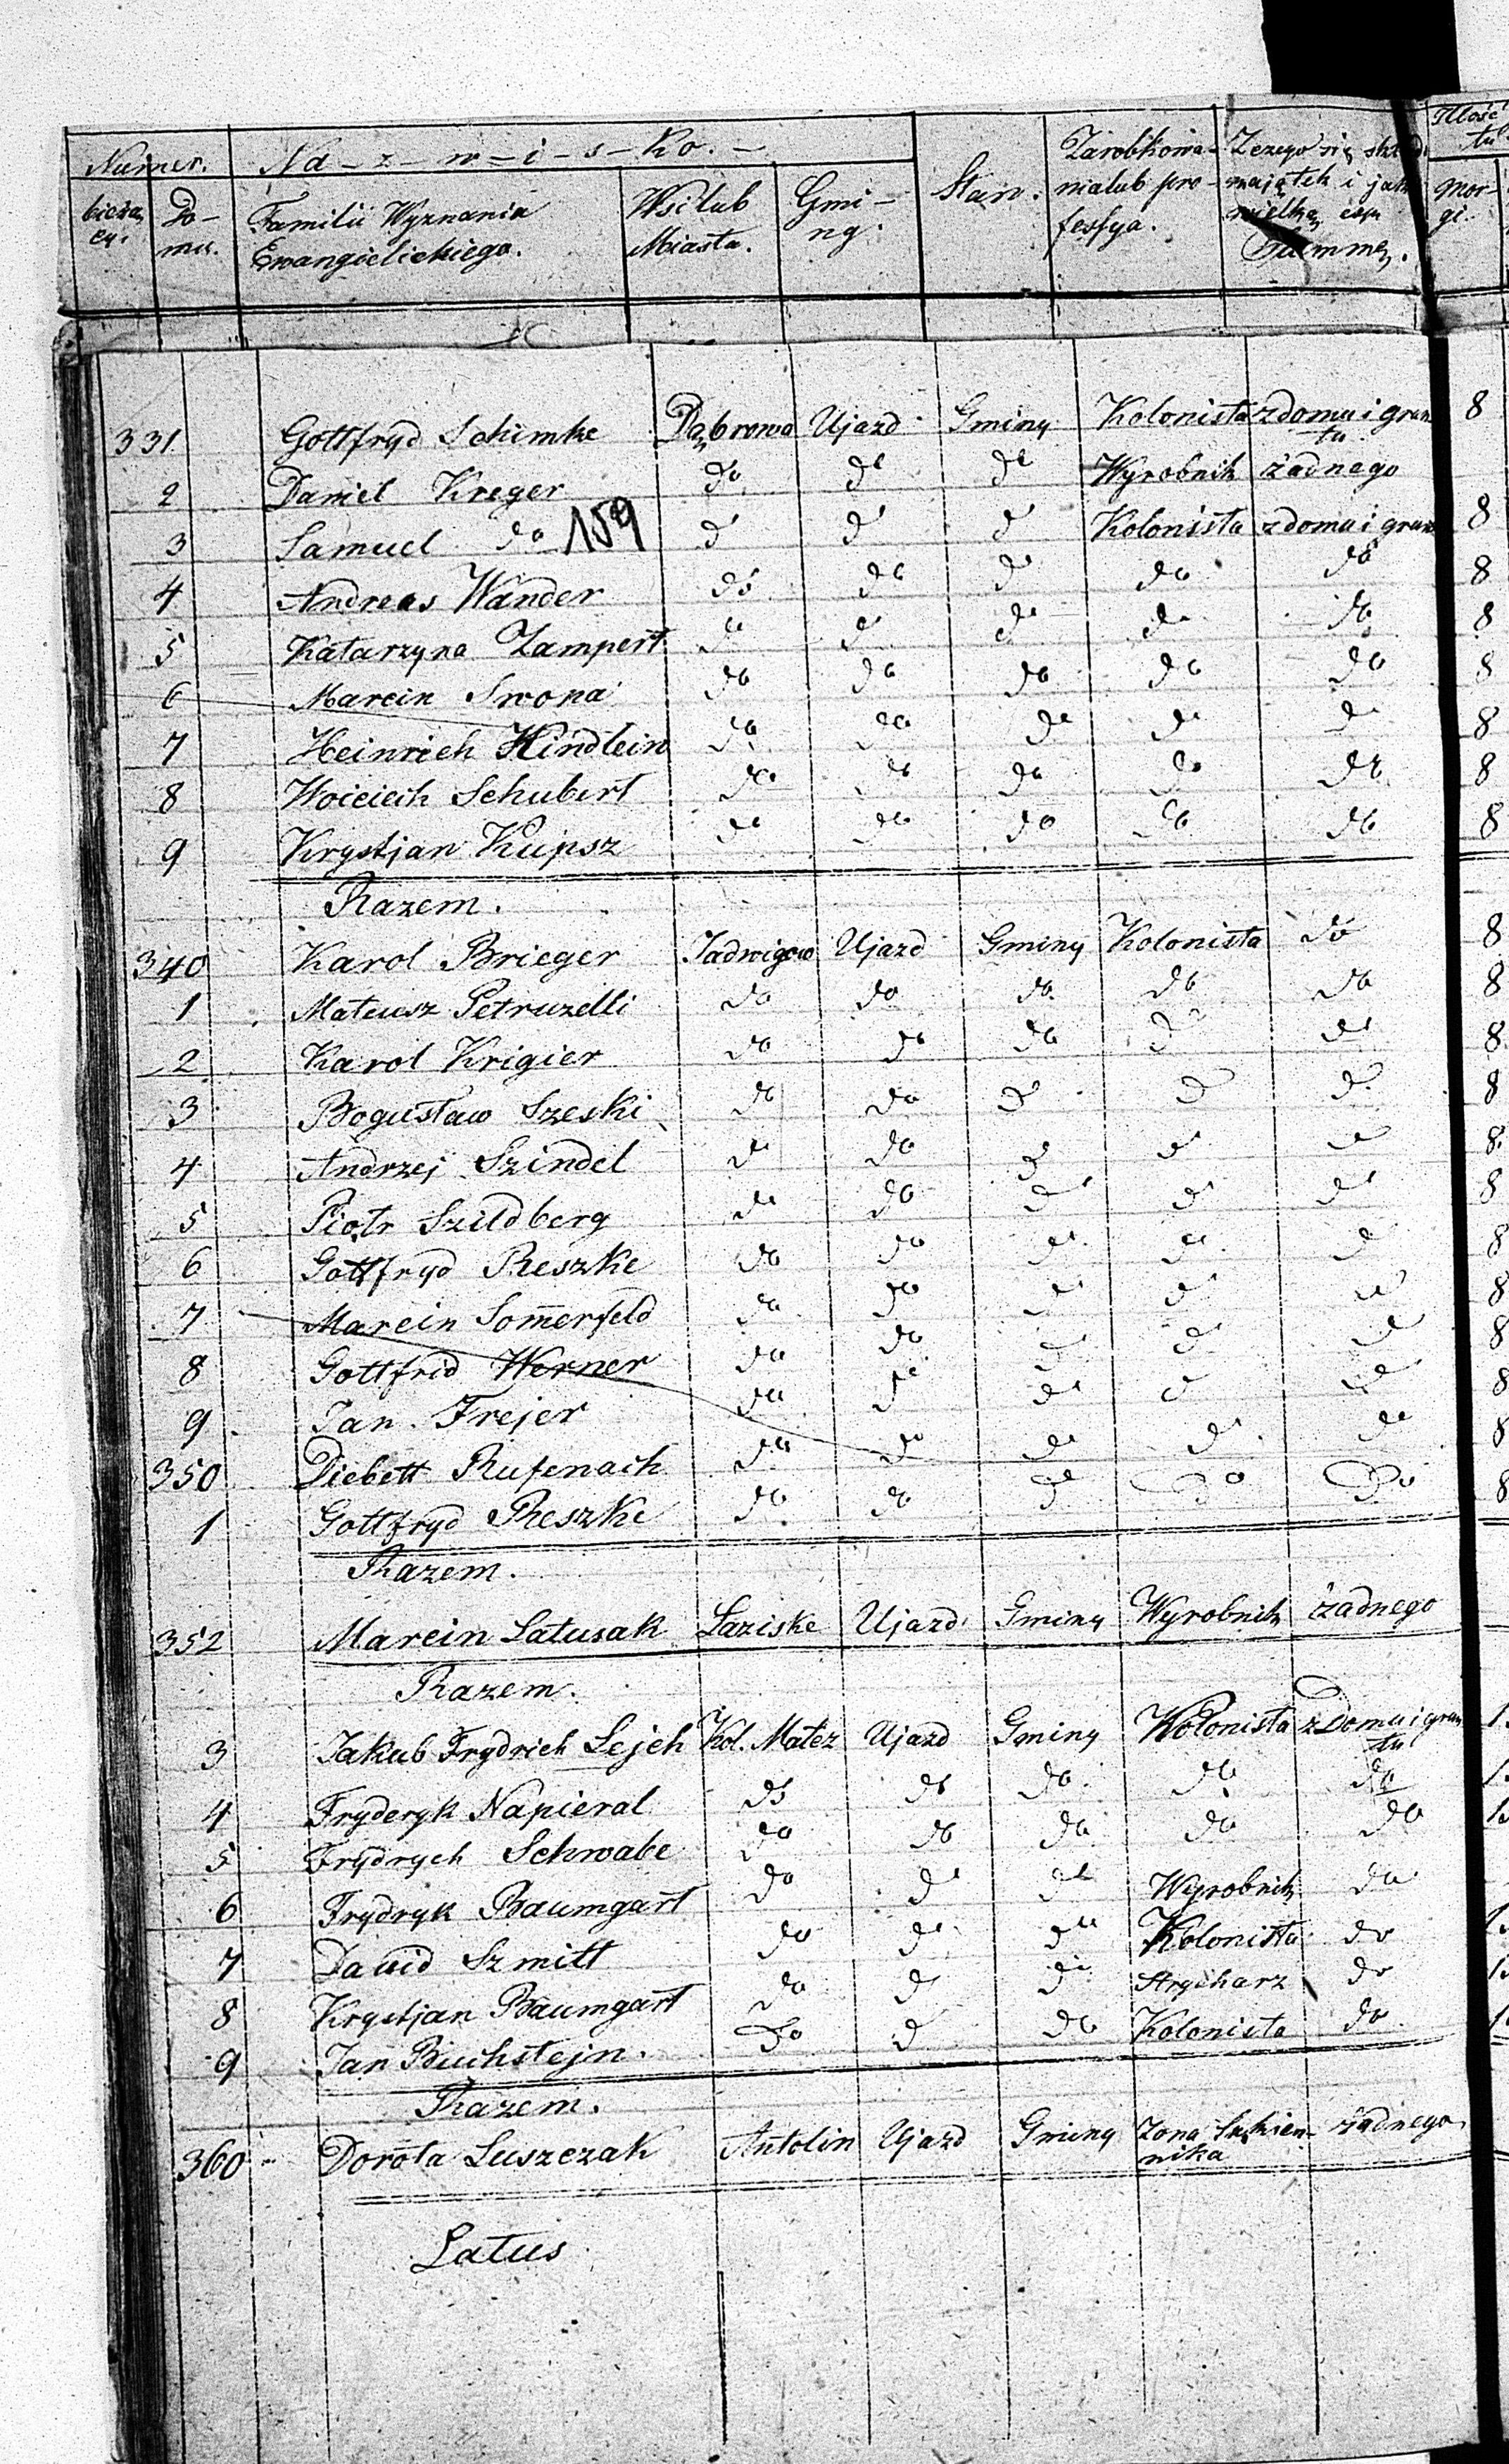 Numer. Na-z-w-i-s-ko.- Stan. Zarobkowa- Z czego się skład Ilość
bieżą Do- Familii Wyznania Wsi lub Gmi- nia lub pro- majątek i jak Mor-
cy. mu. Ewangielickiego. Miasta. ny. fessya. wielką Summę. gi.
331 Gottfryd Schimke Dąbrowa Ujazd Gminy Kolonista z domu i grun 8
tu
2 Daniel Kreger do do do Wyrobnik żadnego
3 Samuel do 159 do do do Kolonista z domu i grun 8
4 Andreas Wander do do do do do 8
5 Katarzyna Lampert do do do do do 8
6 Marcin Swona do do do do do 8
7 Heinrich Hindlein do do do do do 8
8 Woiciech Schubert do do do do do 8
9 Krystjan Kupsz do do do do do 8
Razem.
340 Karol Brieger Jadwigow Ujazd Gminy Kolonista do 8
1 Mateusz Petruzelli do do do do do 8
2 Karol Krigier do do do do do 8
3 Bogusław Szeski do do do do do 8
4 Andrzej Szindel do do do do do 8
5 Piotr Szildberg do do do do do 8
6 Gottfryd Reszke do do do do do 8
7 Marcin Som̄erfeld do do do do do 8
8 Gottfrid Werner do do do do do 8
9 Jan Frejer do do do do do 8
350 Diebett Rufenach do do do do do 8
1 Gottfryd Reszke do do do do do 8
Razem.
352 Marcin Łatusak Łaziske Ujazd Gminy Wyrobnik żadnego
Razem.
3 Jakub Frydrich Lejch Kol. Matez Ujazd Gminy Kolonista z Domu i grun
tu
4 Fryderyk Napieral do do do do do
5 Frydrych Schwabe do do do do do
6 Frydryk Baumgart do do do Wyrobnik do
7 Dawid Szmitt do do do Kolonista do
8 Krystjan Baumgart do do do Strycharz do
9 Jan Buchstejn. do do do Kolonista do
Razem.
360 Dorota Luszczak Antolin Ujazd Gminy Zona Sukien- żadnego
nika
Latus